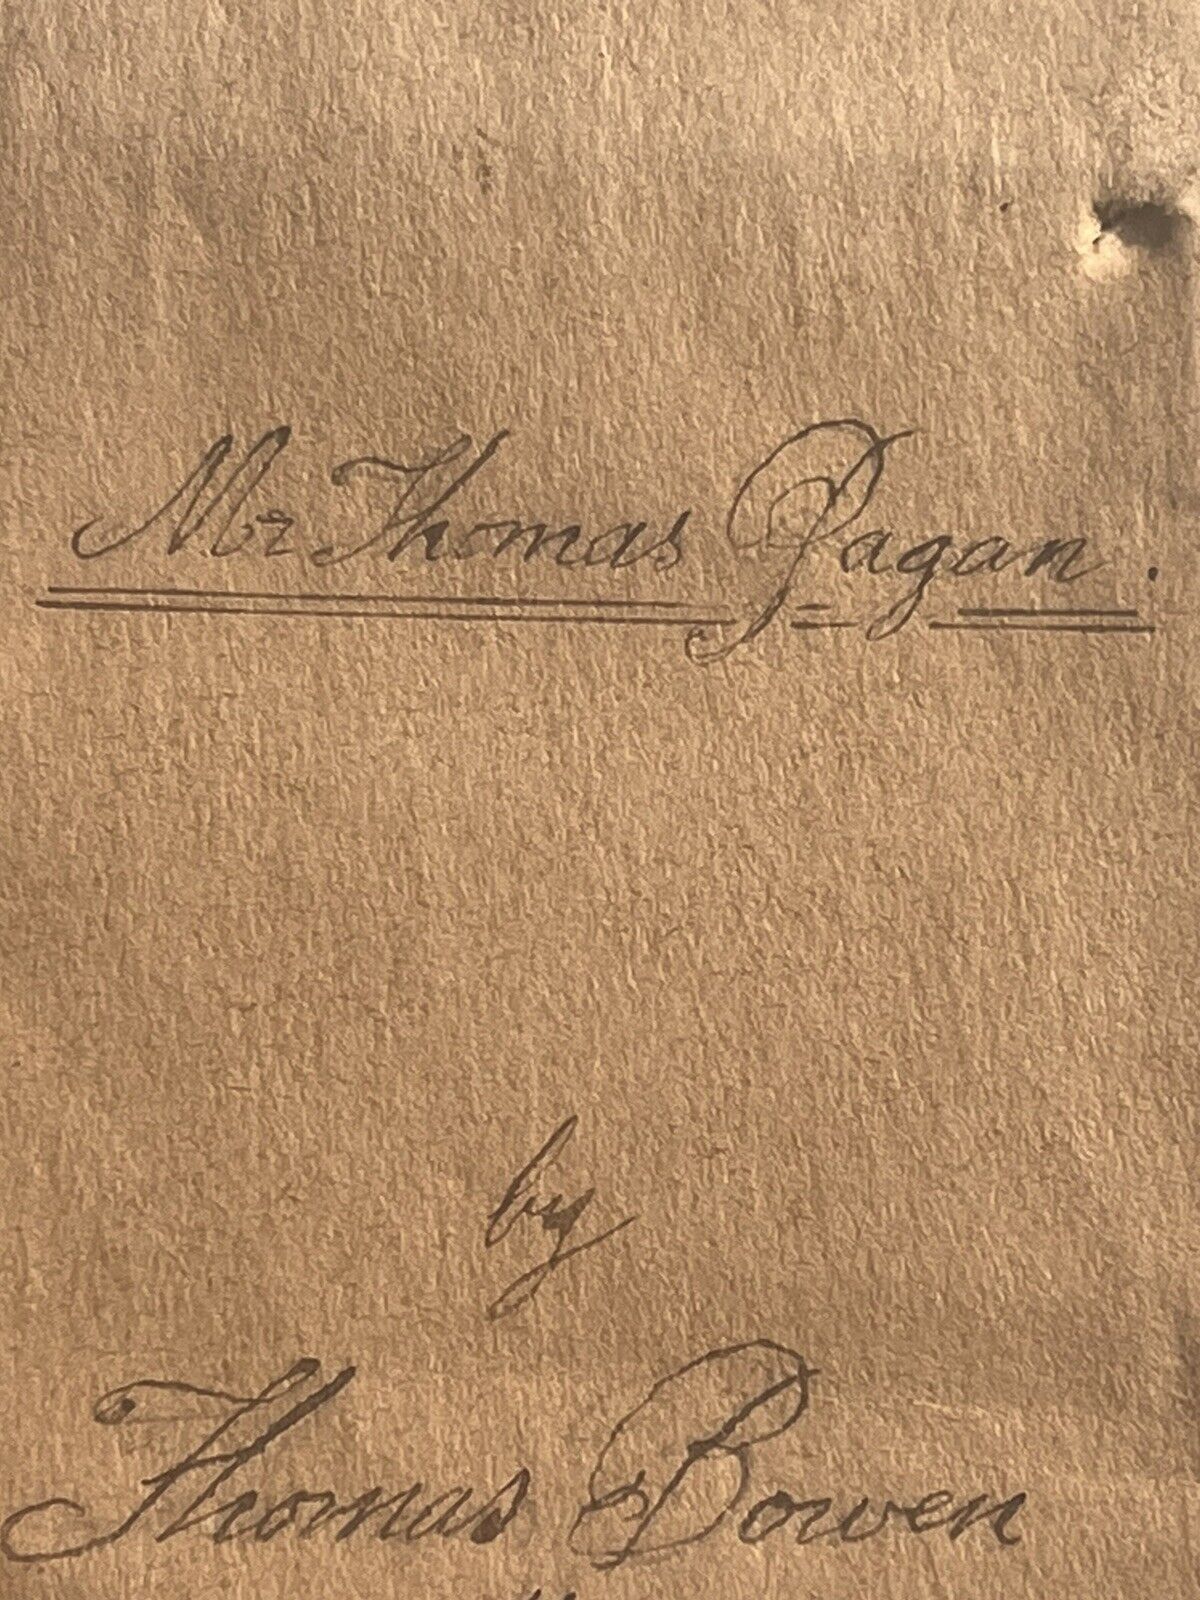 Mr Thomas Pagan.
by
Thomas Bowen